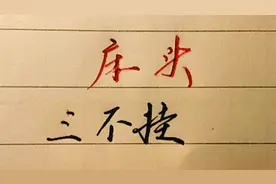 床头
三不挂